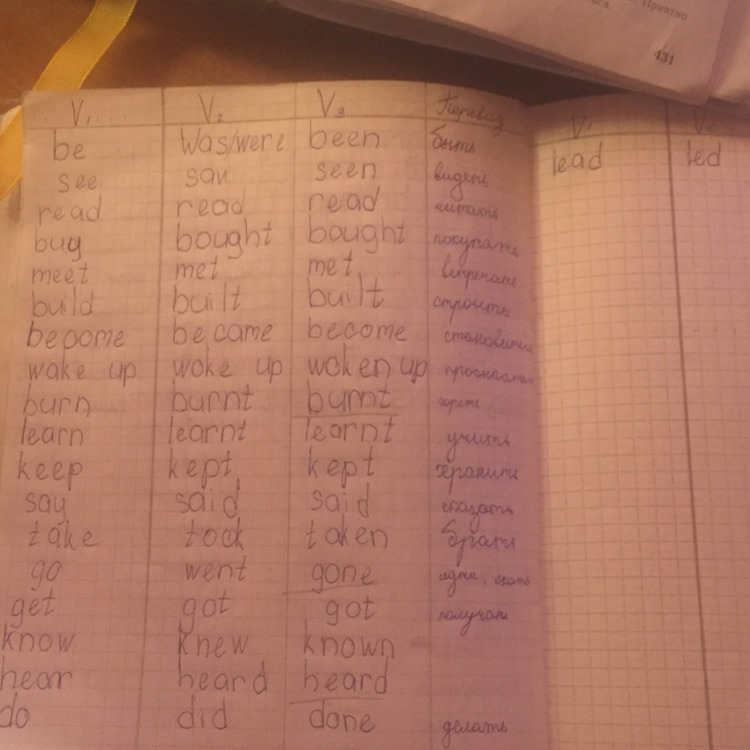 Приятно
431
V1 V2 V3 Перевод V1
be was/were been быть lead led
see saw seen видеть
read read read читать
buy bought bought покупать
meet met met встречать
build built built строить
become became become становиться
wake up woke up woken up просыпаться
burn burnt burnt гореть
learn learnt learnt учить
keep kept kept хранить
say said said сказать
take took taken брать
go went gone идти, ехать
get got got получать
know knew known
hear heard heard
do did done делать